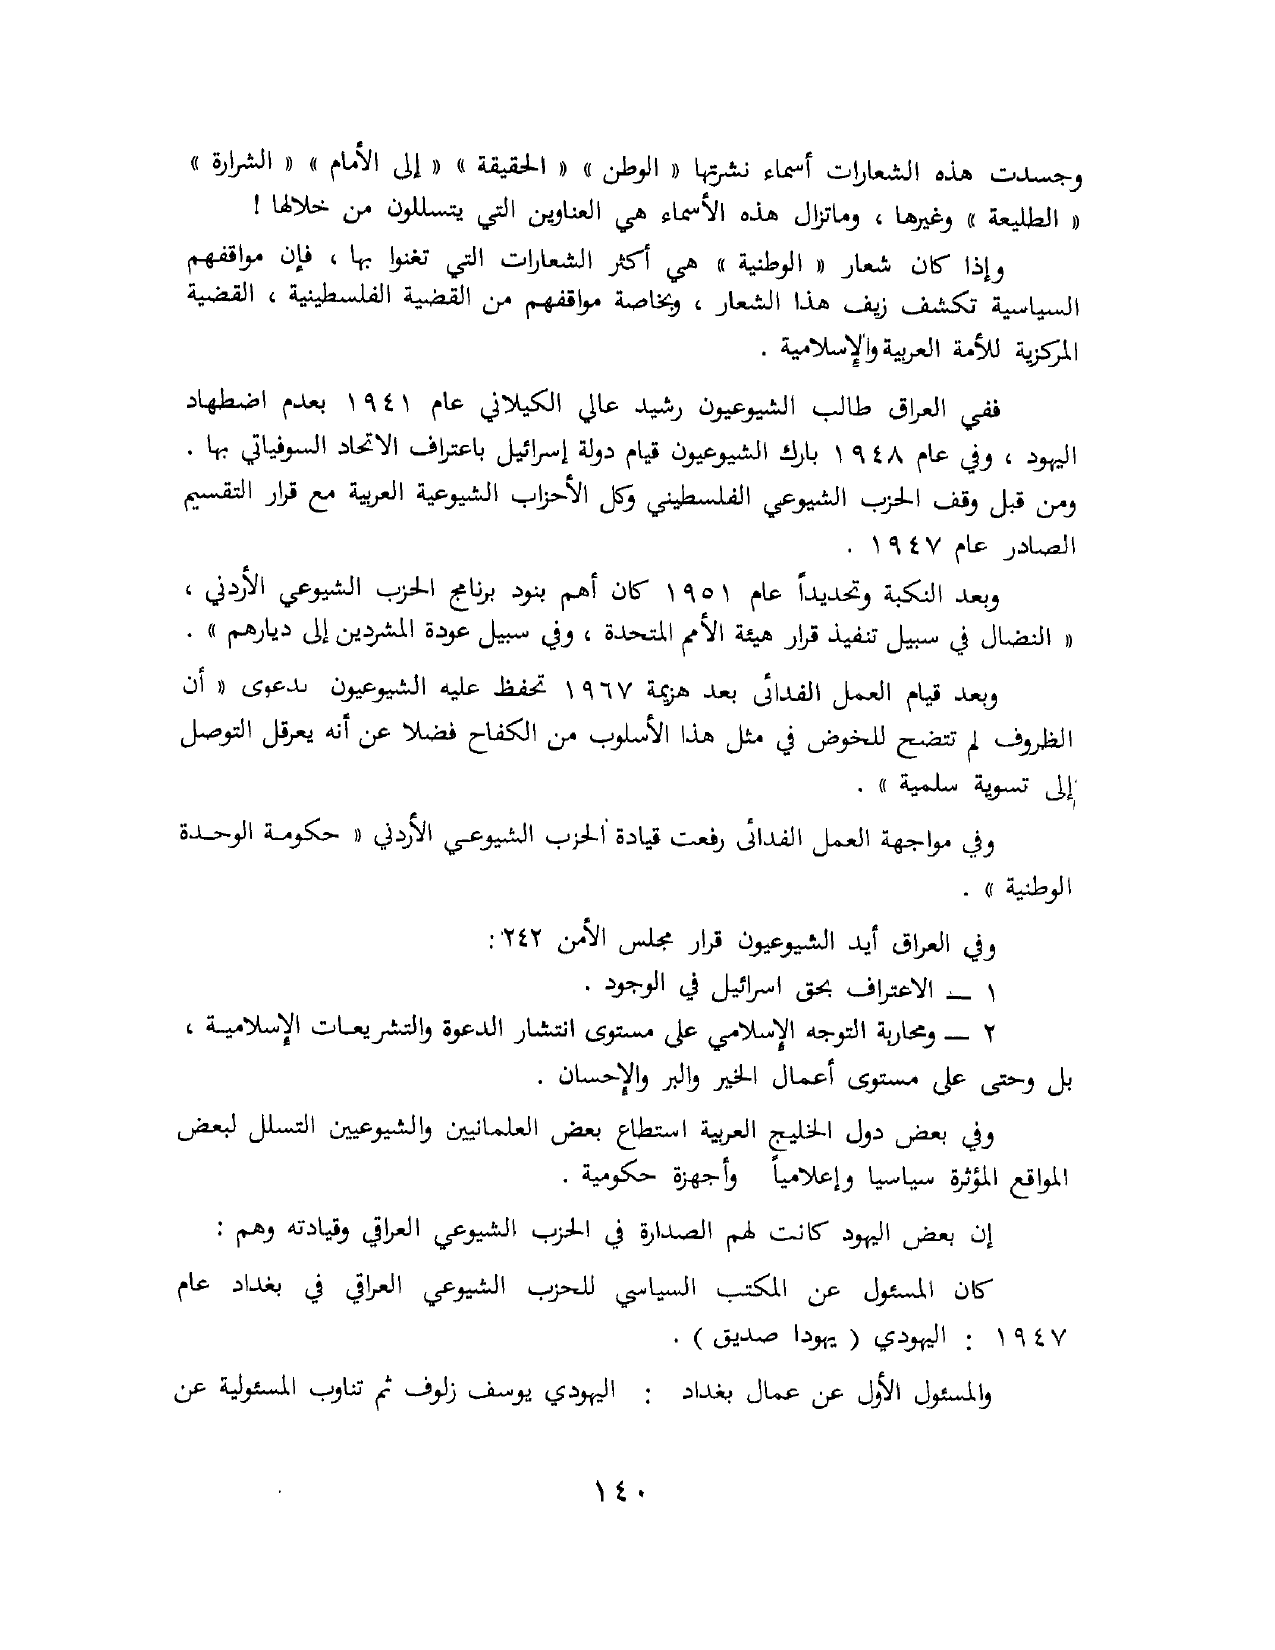 وجسدت هذه الشعارات أسماء نشرتها « الوطن » « الحقيقة » « إلى الأمام » « الشرارة »
« الطليعة » وغيرها ، وماتزال هذه الأسماء هي العناوين التي يتسللون من خلالها !
وإذا كان شعار « الوطنية » هي أكثر الشعارات التي تغنوا بها ، فإن مواقفهم
السياسية تكشف زيف هذا الشعار ، وبخاصة مواقفهم من القضية الفلسطينية ، القضية
المركزية للأمة العربية والإسلامية .
ففي العراق طالب الشيوعيون رشيد عالي الكيلاني عام ١٩٤١ بعدم اضطهاد
اليهود ، وفي عام ١٩٤٨ بارك الشيوعيون قيام دولة إسرائيل باعتراف الاتحاد السوفياتي بها .
ومن قبل وقف الحزب الشيوعي الفلسطيني وكل الأحزاب الشيوعية العربية مع قرار التقسيم
الصادر عام ١٩٤٧ .
وبعد النكبة وتحديداً عام ١٩٥١ كان أهم بنود برنامج الحزب الشيوعي الأردني ،
« النضال في سبيل تنفيذ قرار هيئة الأمم المتحدة ، وفي سبيل عودة المشردين إلى ديارهم » .
وبعد قيام العمل الفدائى بعد هزيمة ١٩٦٧ تحفظ عليه الشيوعيون بدعوى « أن
الظروف لم تتضح للخوض في مثل هذا الأسلوب من الكفاح فضلا عن أنه يعرقل التوصل
إلى تسوية سلمية » .
وفي مواجهة العمل الفدائى رفعت قيادة الحزب الشيوعي الأردني « حكومة الوحدة
الوطنية » .
وفي العراق أيد الشيوعيون قرار مجلس الأمن ٢٤٢ :
١ ــ الاعتراف بحق اسرائيل في الوجود .
٢ ــ ومحاربة التوجه الإسلامي على مستوى انتشار الدعوة والتشريعات الإسلامية ،
بل وحتى على مستوى أعمال الخير والبر والإحسان .
وفي بعض دول الخليج العربية استطاع بعض العلمانيين والشيوعيين التسلل لبعض
المواقع المؤثرة سياسيا وإعلامياً وأجهزة حكومية .
إن بعض اليهود كانت لهم الصدارة في الحزب الشيوعي العراقي وقيادته وهم :
كان المسئول عن المكتب السياسي للحزب الشيوعي العراقي في بغداد عام
١٩٤٧ : اليهودي ( يهودا صديق ) .
والمسئول الأول عن عمال بغداد : اليهودي يوسف زلوف ثم تناوب المسئولية عن
١٤٠